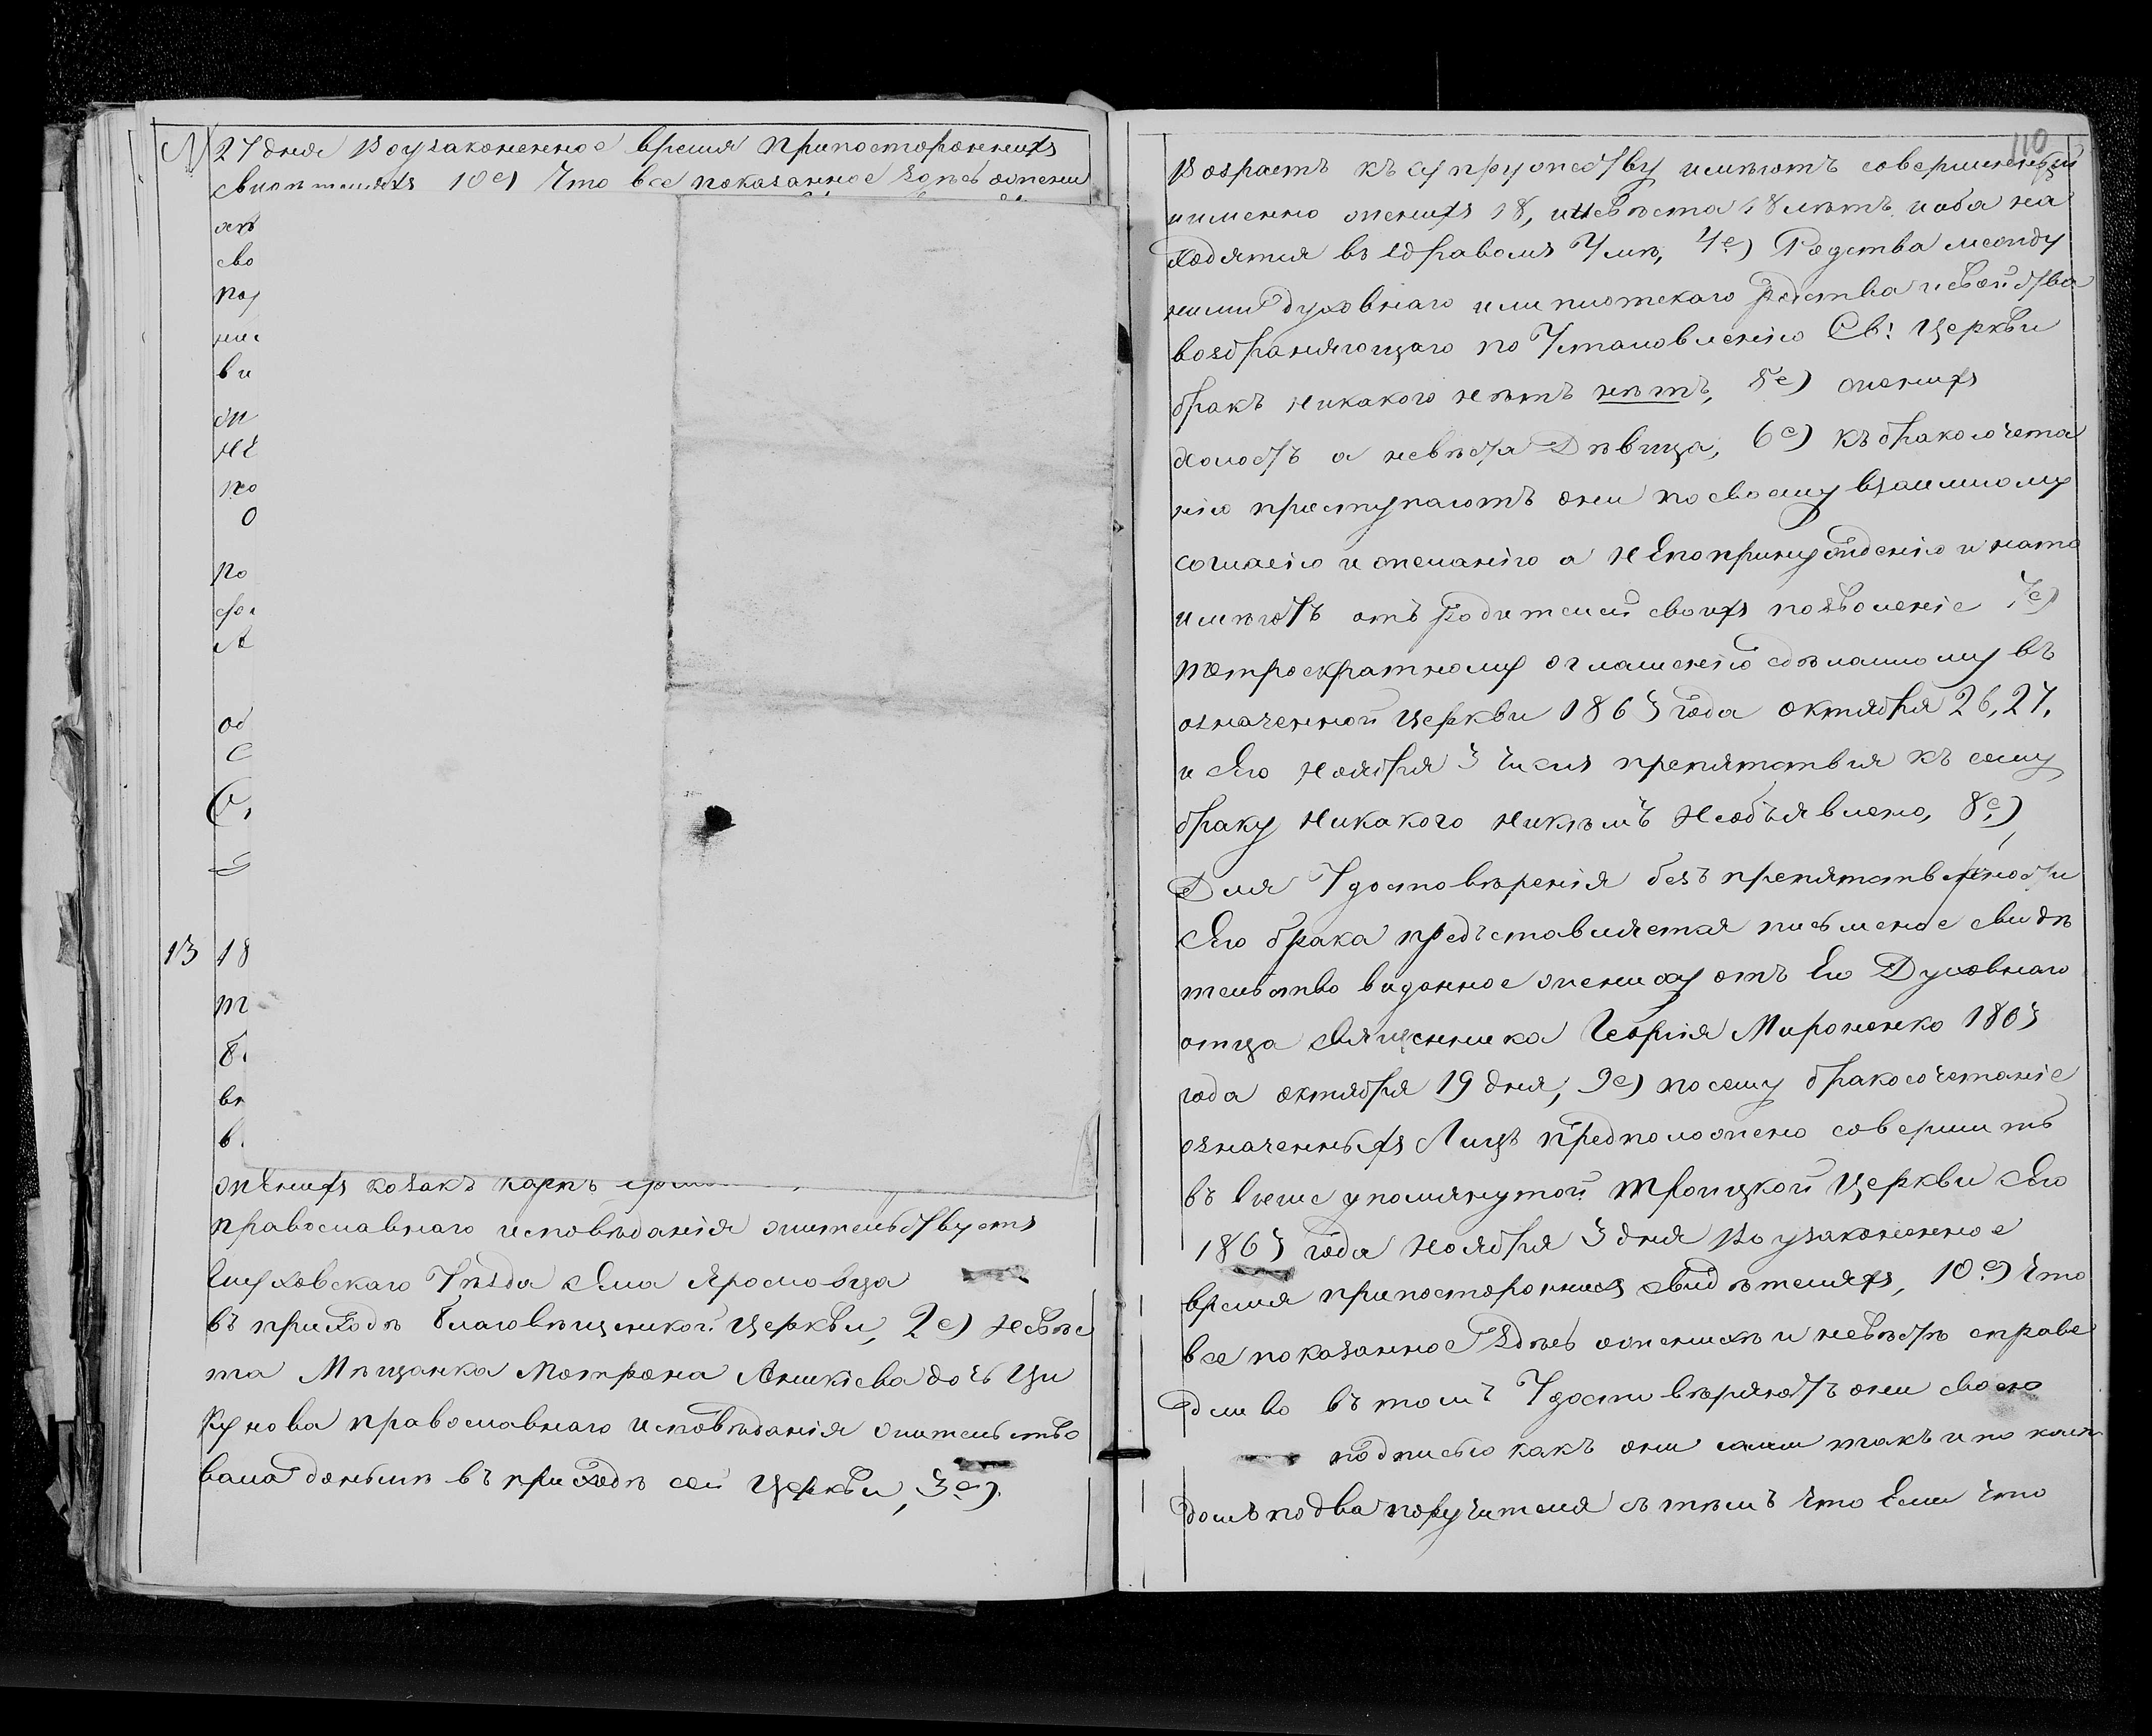 N 27 дня воузаконенное время припостороннихъ
свидѣтеляхъ 10е) Что все показанное здѣсь ожени
ви
по
О
по
об
13 18
жЕнихъ козакъ карпъ
православнаго исповѣданія жительствуетъ
Глуховскаго Уѣзда села Ярославца
въ приходѣ благовѣщенской церкви, 2е) невѣс
та Мѣщанка Мотрона Аникіева дочь Ци
кунова православнаго исповѣданія жительство
вала донынѣ въ приходѣ сей Церкви, 3е)
110
возрастъ къ супружеству имѣютъ совершенный
именно женихъ 18, иневѣста 18 лѣтъ иоба на
ходятся въ здравомъ Умѣ, 4е) Родства между
ними духовнаго или плотскаго родства исвойства
возбраняющаго по Установленію Св: Церкви
бракъ никакого нѣтъ нѣтъ, 5е) женихъ
холостъ а невѣста Дѣвица, 6е) къ бракосочета
нію приступаютъ они посвоему взаимному
согласію ижеланію а нЕпопринужденію инато
имѣютъ отъ родителей своихъ позволеніе 7е)
потроекратному оглашенію сдѣланному въ
означенной церкви 1865 года октября 26, 27,
и сего ноября 3 числа препятствія къ сему
браку никакого никѣмъ необъявлено, 8е)
Для Удостовѣренія безъ препятственности
сего брака предъставляется письменое свидѣ
тельство виданное жениху отъ Его Духовнаго
отца священника Георгія Мироненко 1865
года октября 19 дня, 9е) посему бракосочетаніе
означенныхъ Лицъ предположено совершить
въ више упомянутой троицкой Церкви сего
1865 года ноября 3 дня воузаконенное
время припосторонихъ свидѣтеляхъ, 10е) что
все показанное здѣсь оженихѣ и невѣстѣ справе
дливо въ томъ Удостовѣряютъ они своею
подписью какъ они сами такъ и по каж
домъ подва поручителя съ тѣмъ что Если что